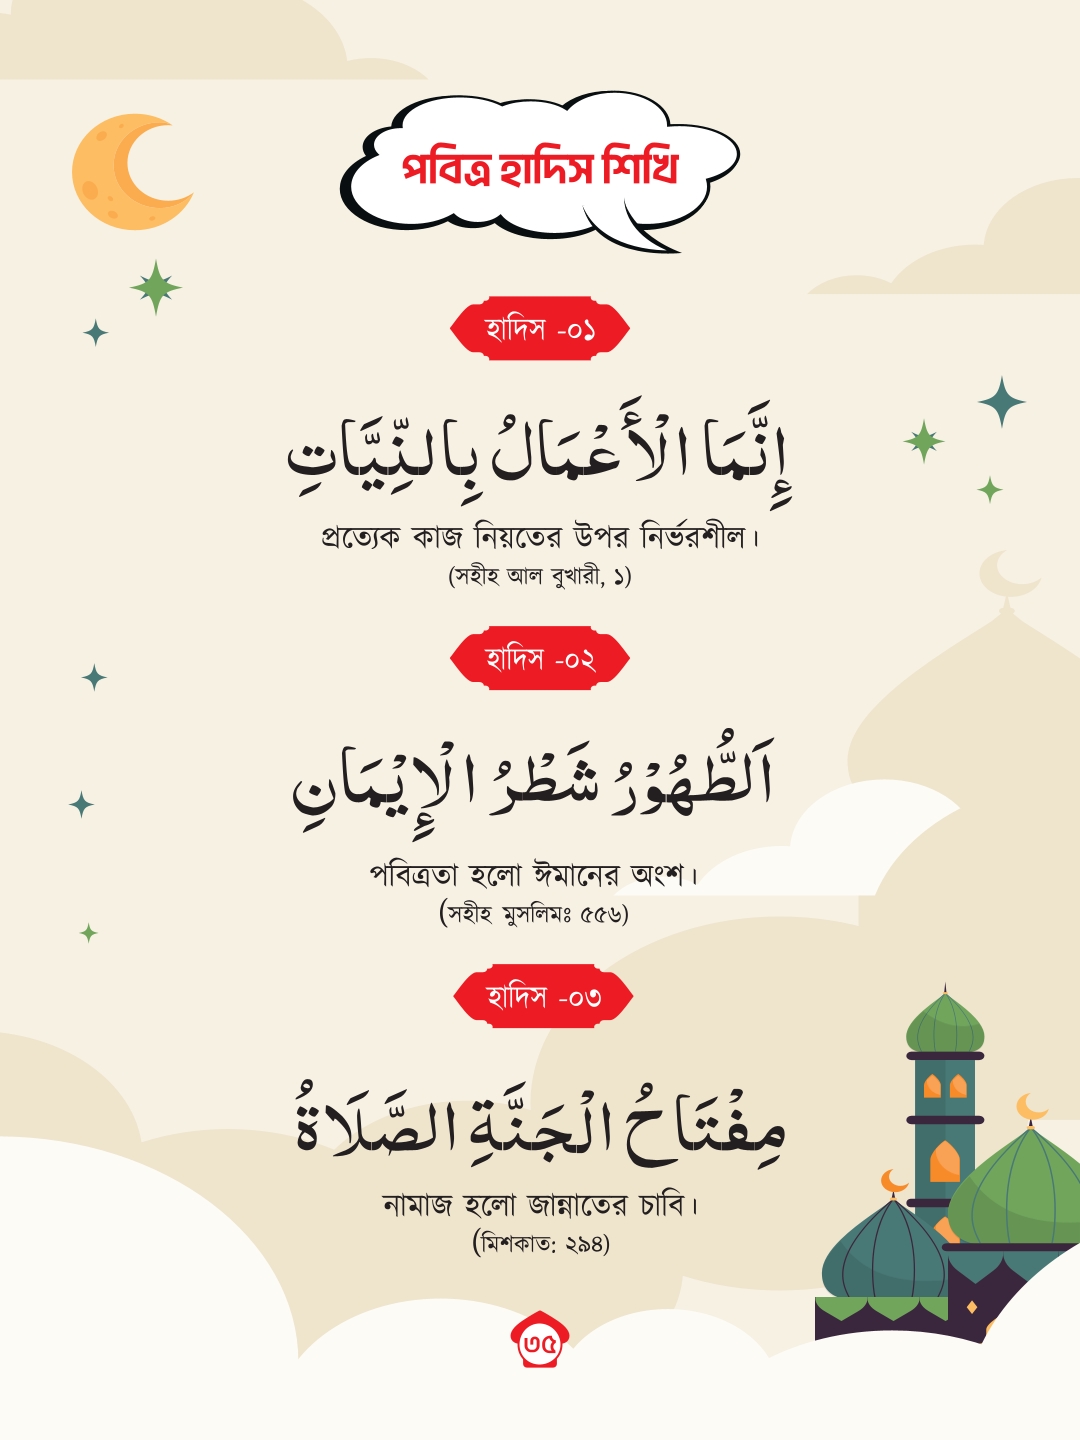 পবিত্র হাদিস শিখি
হাদিস -০১
إِنَّمَا الْأَعْمَالُ بِالنِّيَّاتِ
প্রত্যেক কাজ নিয়তের উপর নির্ভরশীল।
(সহীহ আল বুখারী, ১)
হাদিস -০২
اَلطُّهُوْرُ شَطْرُ الْإِيْمَانِ
পবিত্রতা হলো ঈমানের অংশ।
(সহীহ মুসলিমঃ ৫৫৬)
হাদিস -০৩
مِفْتَاحُ الْجَنَّةِ الصَّلَاةُ
নামাজ হলো জান্নাতের চাবি।
(মিশকাত: ২৯৪)
৩৫